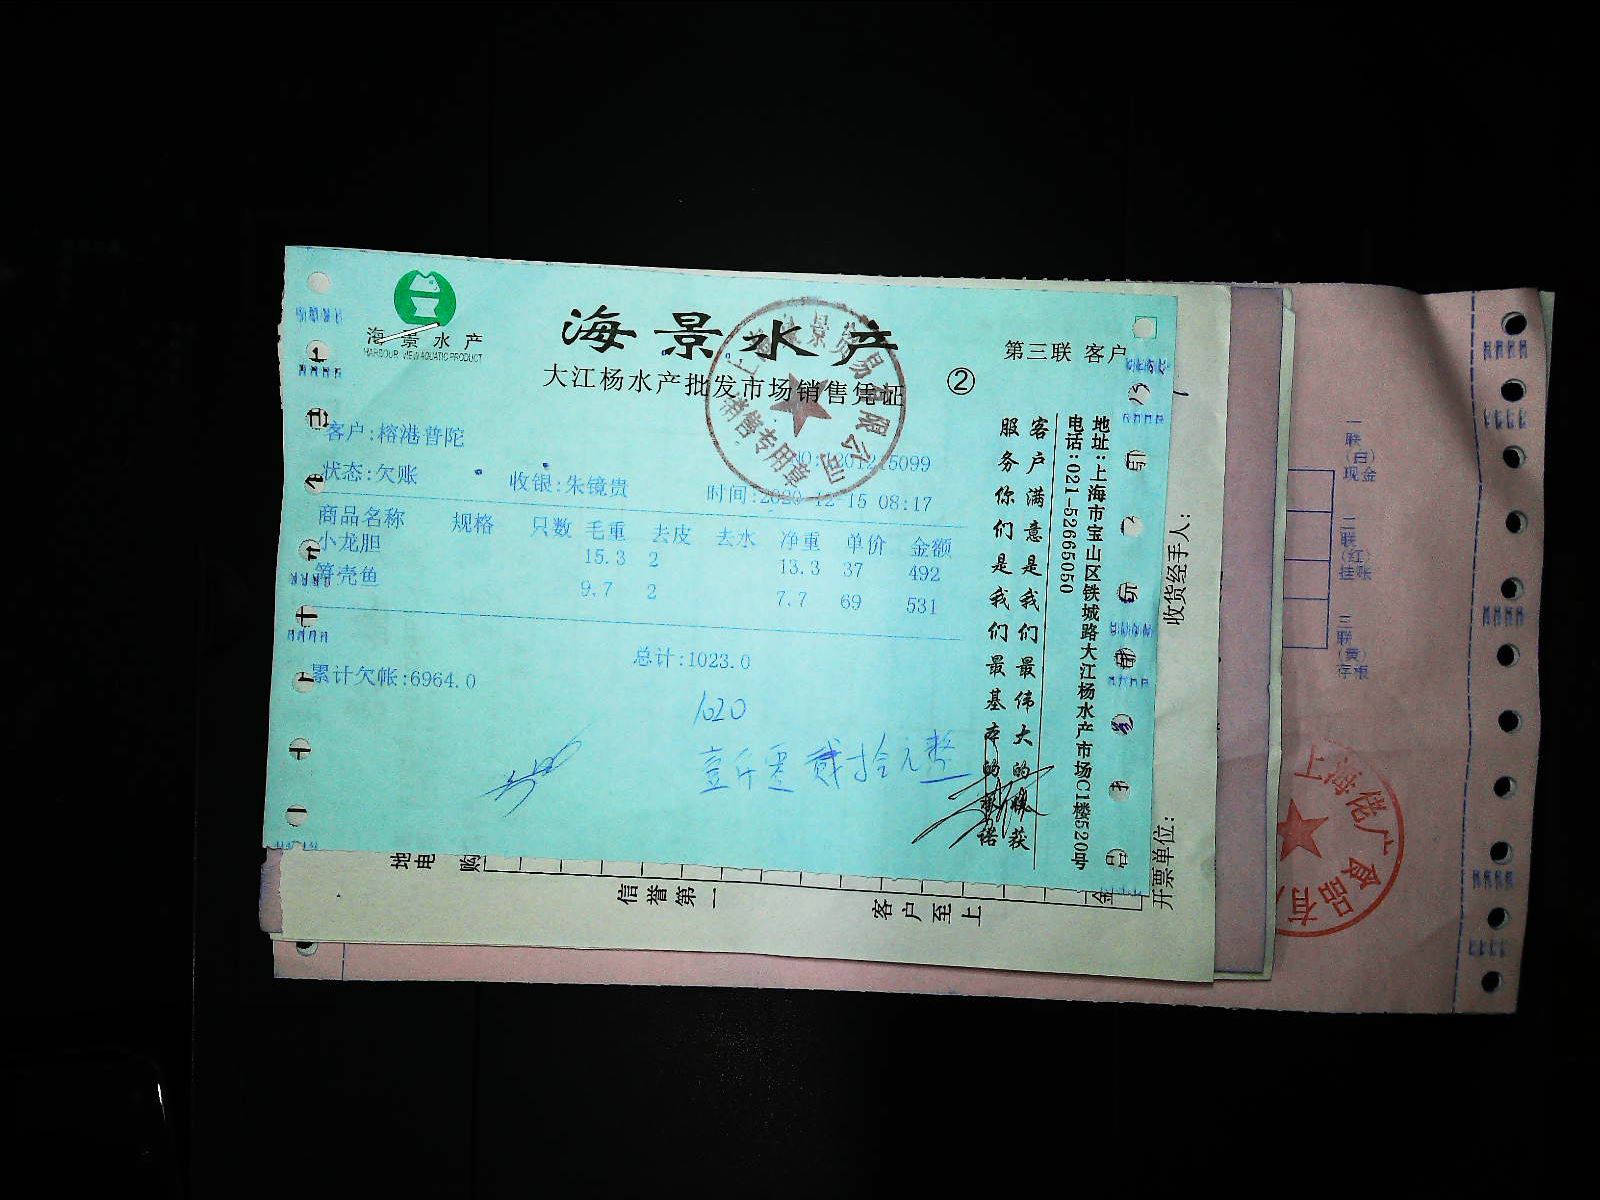 海景水产
HARBOUR VIEW AQUATIC PRODUCT
海景水产
大江杨水产批发市场销售凭证
②
第三联 客户
客户:榕港普陀
5099
状态:欠账
收银:朱镜贵
时间:2020-12-15 08:17
商品名称 规格 只数 毛重 去皮 去水 净重 单价 金额
小龙胆 15.3 2 13.3 37 492
笋壳鱼 9.7 2 7.7 69 531
总计:1023.0
累计欠帐:6964.0
1020
壹仟零贰拾元整
销售专用章
客户满意是我们最伟大的
服务你们是我们最基本的
地址:上海市宝山区铁城路大江杨水产市场C1楼520号
电话:021-52665050
收货经手人:
开票单位:
地
电
购
信誉第一
客户至上
金
一联(白)现金
二联(红)挂账
三联(黄)存根